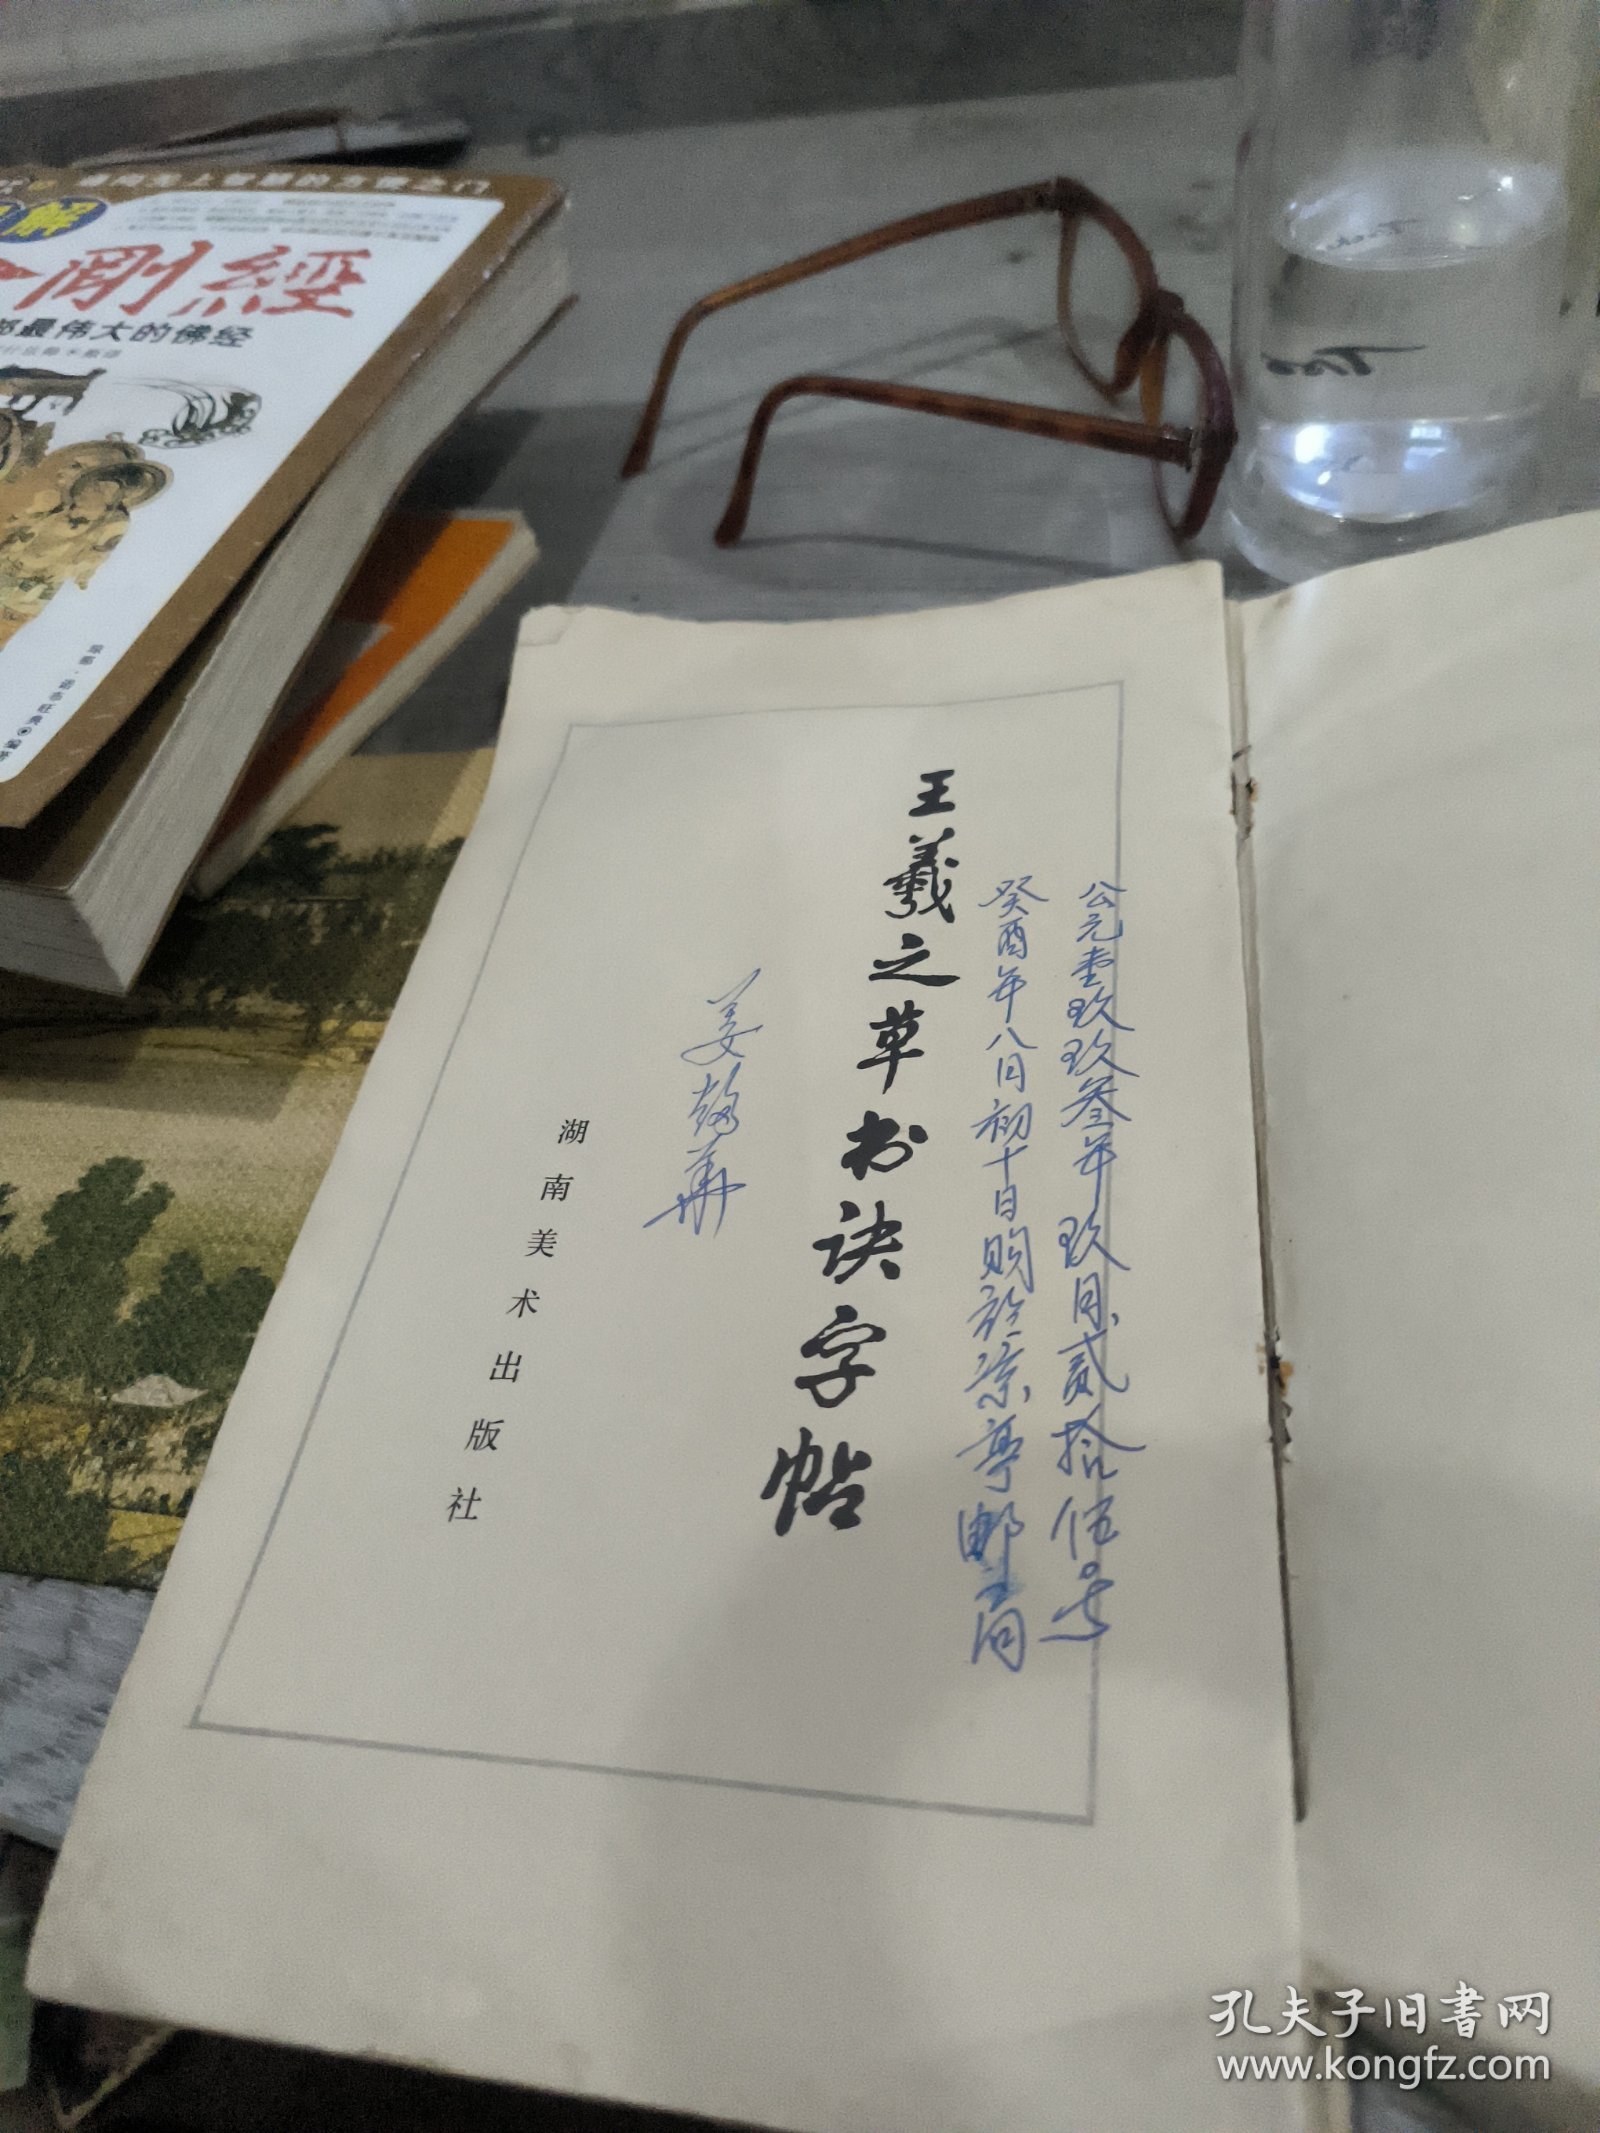 解
剛經
最伟大的佛经
公元壹玖玖叁年玖月贰拾伍号
癸酉年八月初十日购於凉亭邮局
王羲之草书诀字帖
姜
華
湖南美术出版社
孔夫子旧書网
www.kongfz.com